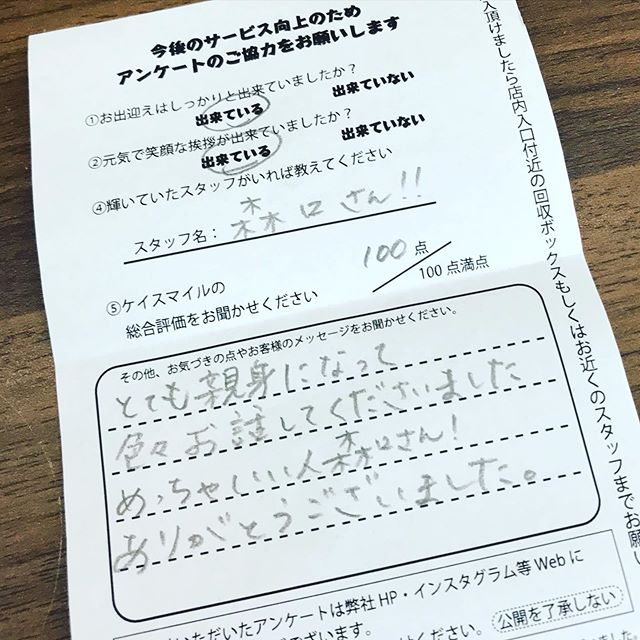 今後のサービス向上のため
アンケートのご協力をお願いします
①お出迎えはしっかりと出来ていましたか？
出来ている 出来ていない
②元気で笑顔な挨拶が出来ていましたか？
出来ている 出来ていない
④輝いていたスタッフがいれば教えてください
スタッフ名： 森口さん!!
⑤ケイスマイルの
総合評価をお聞かせください
100 点
100 点満点
その他、お気づきの点やお客様のメッセージをお聞かせください。
とても親身になって
色々お話してくださいました
めっちゃいい人森口さん!
ありがとうございました。
いただいたアンケートは弊社HP・インスタグラム等Webに
ございます。
ください。 公開を了承しない
入頂けましたら店内入口付近の回収ボックスもしくはお近くのスタッフまでお願い